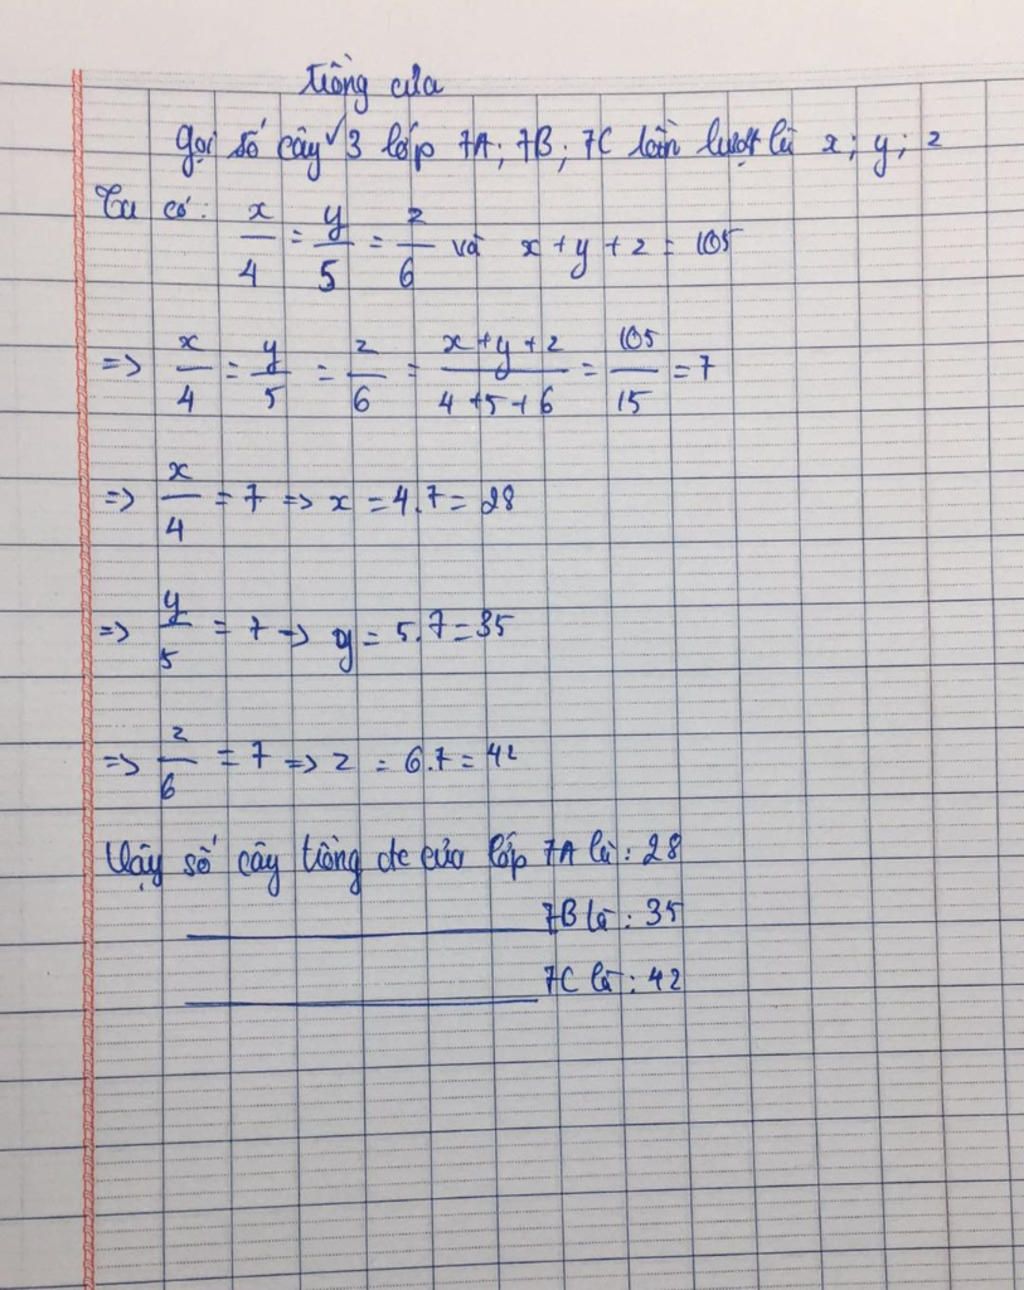 trồng của
Gọi số cây √ 3 lớp 7A; 7B; 7C lần lượt là x; y; z
Ta có: x/4 = y/5 = z/6 và x + y + z = 105
=> x/4 = y/5 = z/6 = (x + y + z)/(4 + 5 + 6) = 105/15 = 7
=> x/4 = 7 => x = 4.7 = 28
=> y/5 = 7 => y = 5.7 = 35
=> z/6 = 7 => z = 6.7 = 42
Vậy số cây trồng đc của lớp 7A là: 28
7B là: 35
7C là: 42